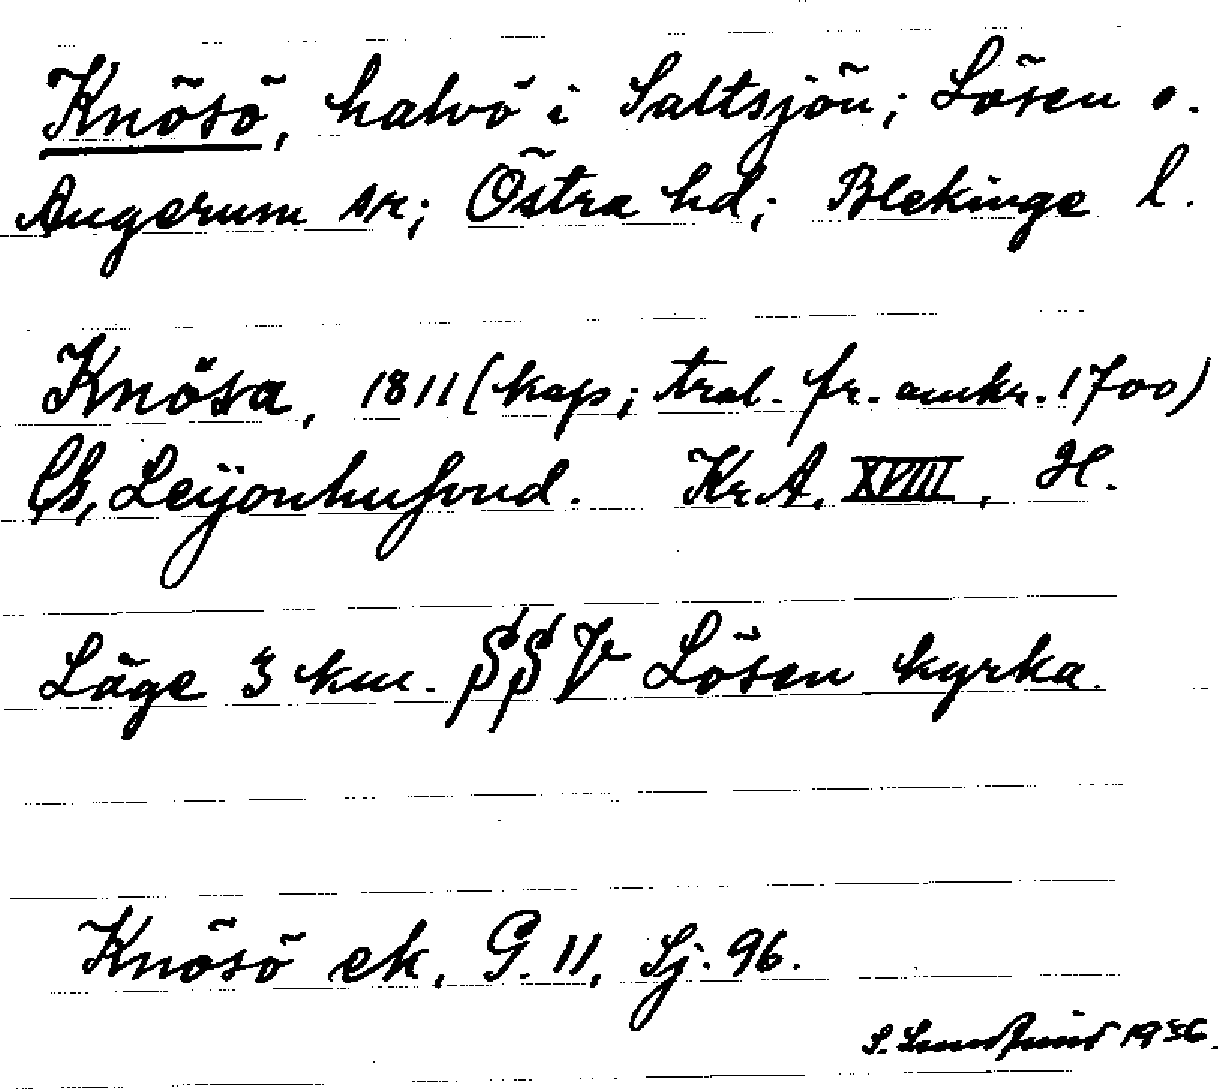 Knösö, halvö i Saltsjön; Lösen o.
Augerum sn; Östra hd; Blekinge l.
Knösa, 1811 (kap; tral. fr. omkr. 1700)
CG, Leijonhufvud. Kr.A. XVIII, H.
Läge 3 km. SSV Lösen kyrka.
Knösö ek, G. 11, Sj. 96.
S. 1936.